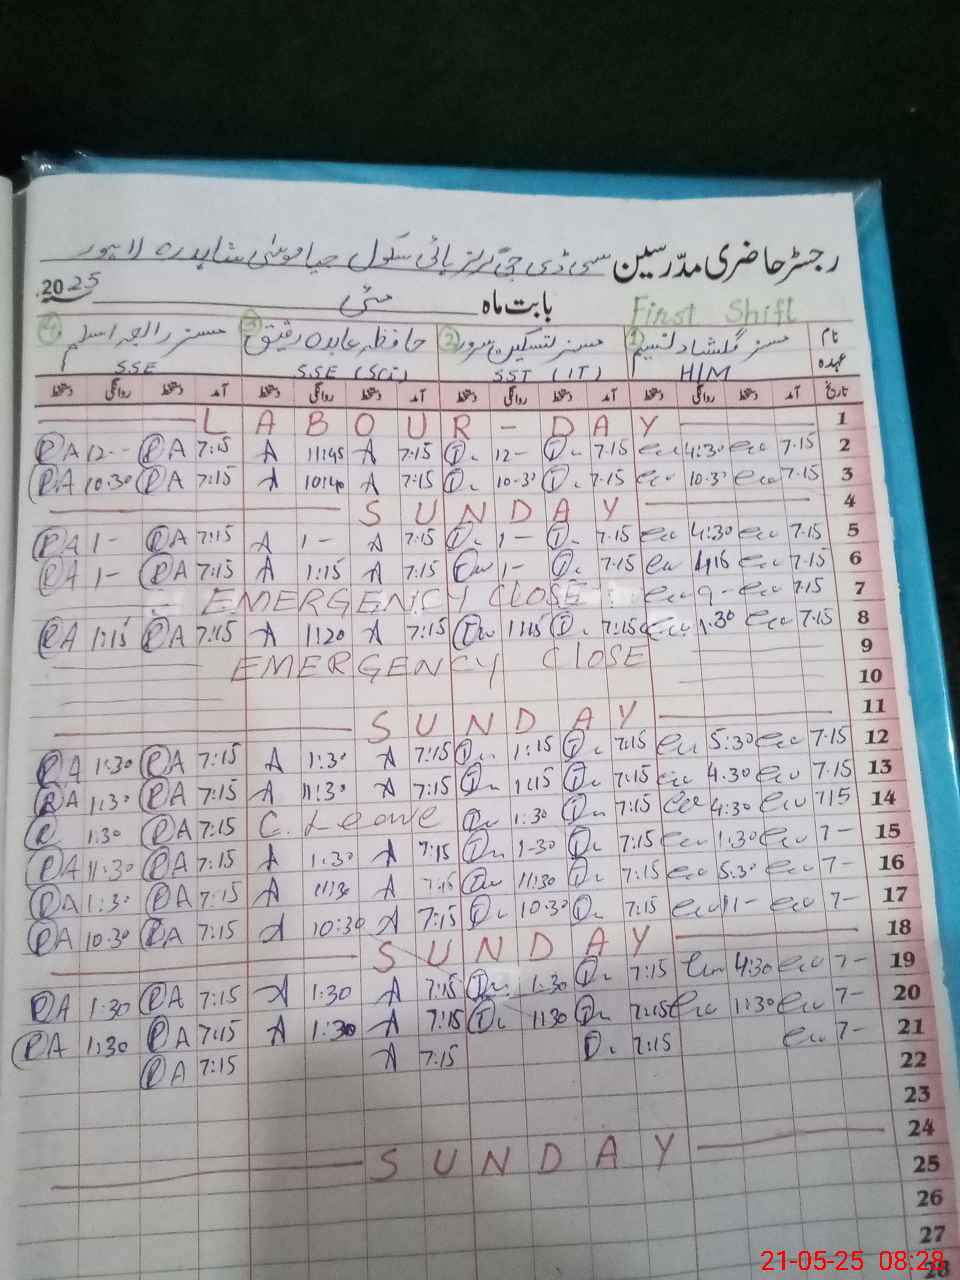 رجسٹر حاضری مدّرسین سی ڈی جی گرلز ہائی سکول حیا موسٰی شاہدرہ لاہور
بابت ماہ مئی 2025
First Shift
نام مسز گلشاد تسنیم ① مسز تسکین سرور ② حافظہ عابدہ رفیق ③ مسز رابعہ اسلم ④
عہدہ H/M SST (IT) SSE (Sci) SSE
تاریخ آمد دستخط روانگی دستخط آمد دستخط روانگی دستخط آمد دستخط روانگی دستخط آمد دستخط روانگی دستخط
LABOUR - DAY 1
RA 12-- RA 7:15 A 11:45 A 7:15 12- 7:15 4:30 7:15 2
RA 10:30 RA 7:15 A 10:40 A 7:15 10:30 7:15 10:30 7:15 3
SUNDAY 4
RA 1- RA 7:15 A 1- A 7:15 1- 7:15 4:30 7:15 5
RA 1- RA 7:15 A 1:15 A 7:15 1- 7:15 4:16 7:15 6
EMERGENCY CLOSE 9- 7:15 7
RA 1:15 RA 7:15 A 1:20 A 7:15 1:15 7:15 1:30 7:15 8
EMERGENCY CLOSE 9
10
SUNDAY 11
RA 1:30 RA 7:15 A 1:30 A 7:15 1:15 7:15 5:30 7:15 12
RA 1:30 RA 7:15 A 1:30 A 7:15 1:15 7:15 4:30 7:15 13
R 1:30 RA 7:15 C. Leave 1:30 7:15 4:30 7:15 14
RA 11:30 RA 7:15 A 1:30 A 7:15 1-30 7:15 1:30 7- 15
RA 1:30 RA 7:15 A 11:30 A 7:15 11:30 7:15 5:30 7- 16
RA 10:30 RA 7:15 A 10:30 A 7:15 10:30 7:15 11- 7- 17
SUNDAY 18
RA 1:30 RA 7:15 A 1:30 A 7:15 1:30 7:15 4:30 7- 19
RA 1:30 RA 7:15 A 1:30 A 7:15 1:30 7:15 1:30 7- 20
RA 7:15 A 7:15 7:15 7- 21
22
23
24
SUNDAY 25
26
27
28
21-05-25 08:28